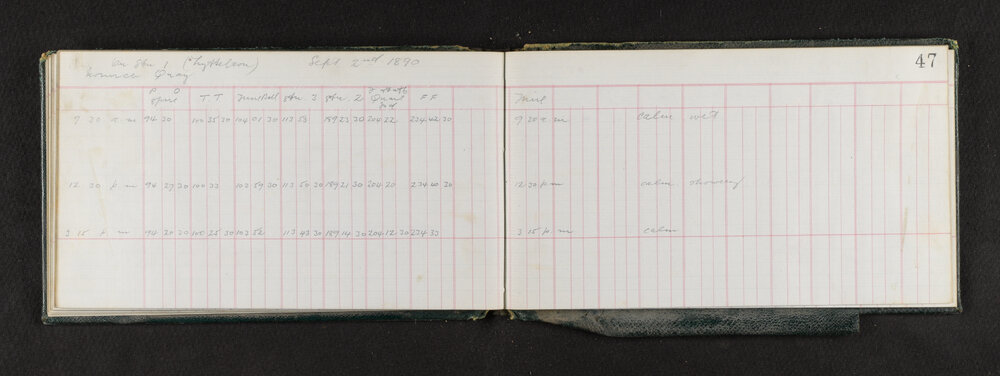 on Stn 1 (Lyttelton) Sept 2nd 1890
Quay
P O Spire T T Stn 3 Stn 2 F F
9 30 a m 94 30 100 35 30 104 01 30 113 53 189 23 30 204 22 234 42 30
12 30 p m 94 27 30 100 33 103 59 30 113 50 30 189 21 30 204 20 234 40 30
3 15 p m 94 20 30 100 25 30 103 52 113 43 30 189 14 30 204 12 30 234 33
47
Time
9 30 a m calm wet
12 30 p m calm showery
3 15 p m calm